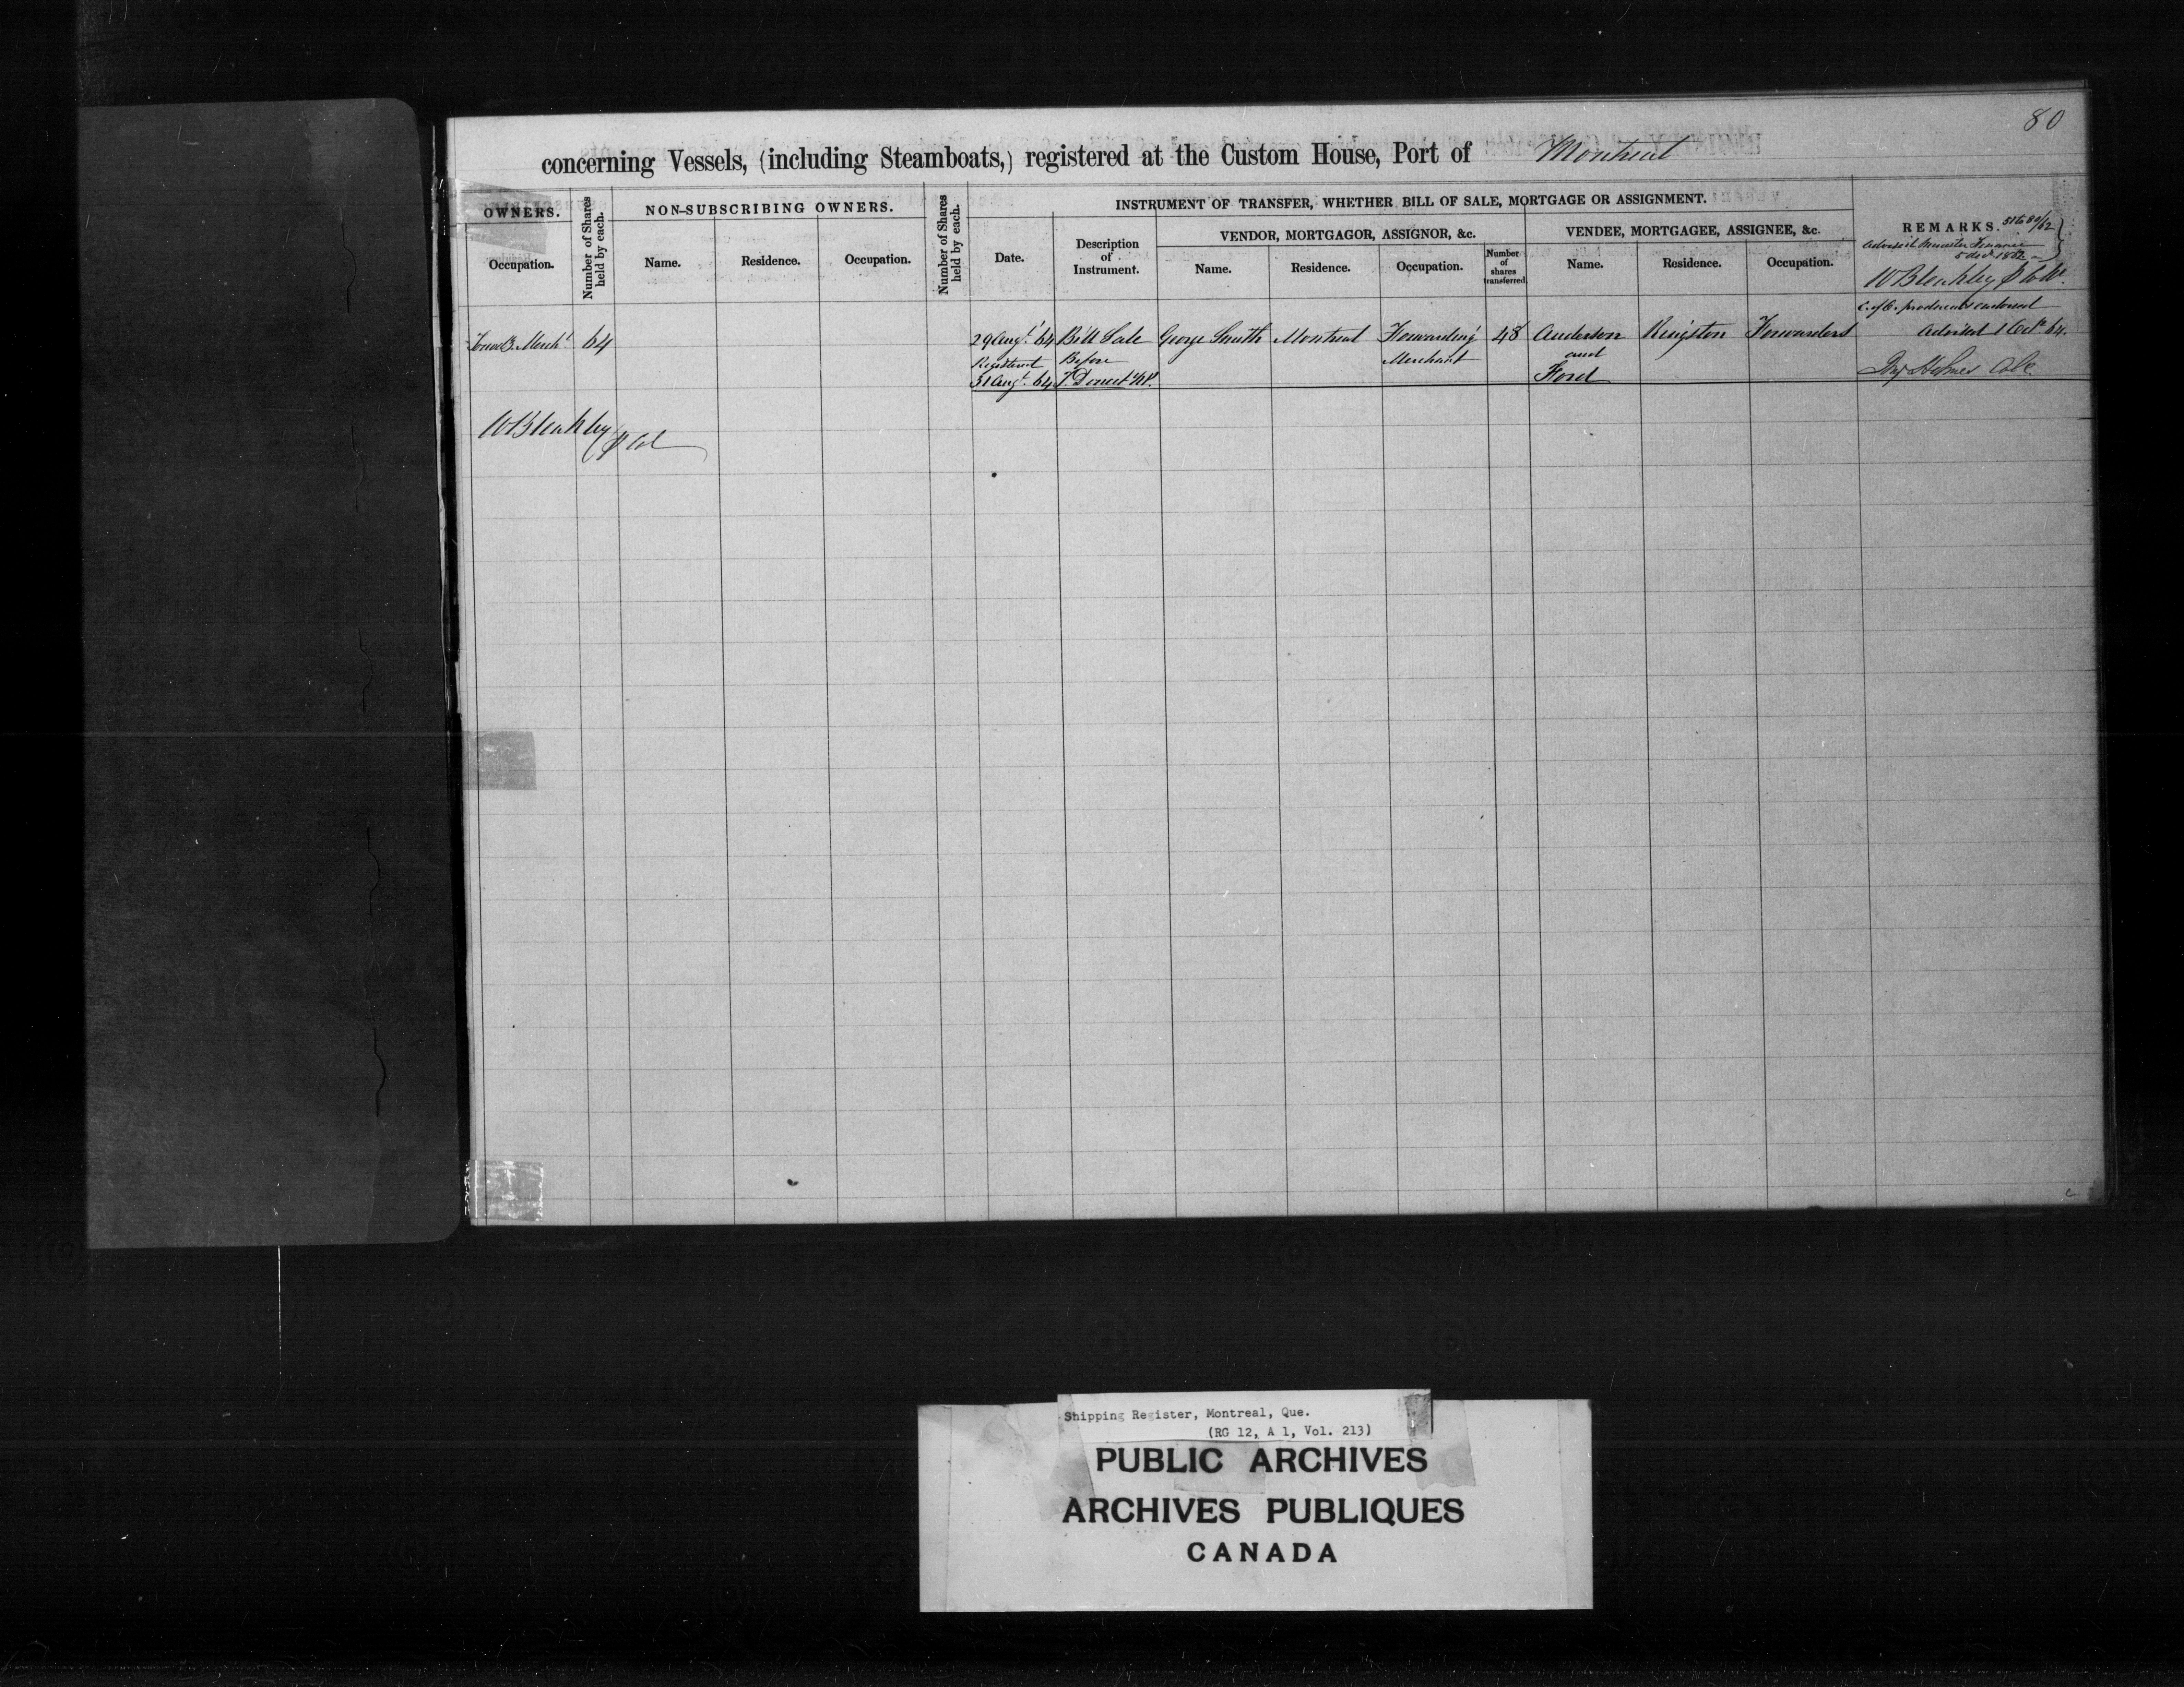 80
concerning Vessels, (including Steamboats,) registered at the Custom House, Port of Montreal
OWNERS.
Occupation.
Number of Shares held by each.
NON-SUBSCRIBING OWNERS.
Name. Residence. Occupation.
Number of Shares held by each.
INSTRUMENT OF TRANSFER, WHETHER BILL OF SALE, MORTGAGE OR ASSIGNMENT.
Date.
Description
of
Instrument.
VENDOR, MORTGAGOR, ASSIGNOR, &c.
Name. Residence. Occupation.
Number
of
shares
transferred
VENDEE, MORTGAGEE, ASSIGNEE, &c.
Name. Residence. Occupation.
REMARKS.
Minister Finance
W Bleakley
C. of O. produced & endorsed
Merch^t 64 29 Augt 64 Bill Sale George Smith Montreal Forwarding 48 Anderson Kingston Forwarders Advised 1 Oct 64.
Registered Before Merchant and
31 Augt. 64 Ford Holmes Col
W Bleakley
Shipping Register, Montreal, Que.
(RG 12, A 1, Vol. 213)
PUBLIC ARCHIVES
ARCHIVES PUBLIQUES
CANADA